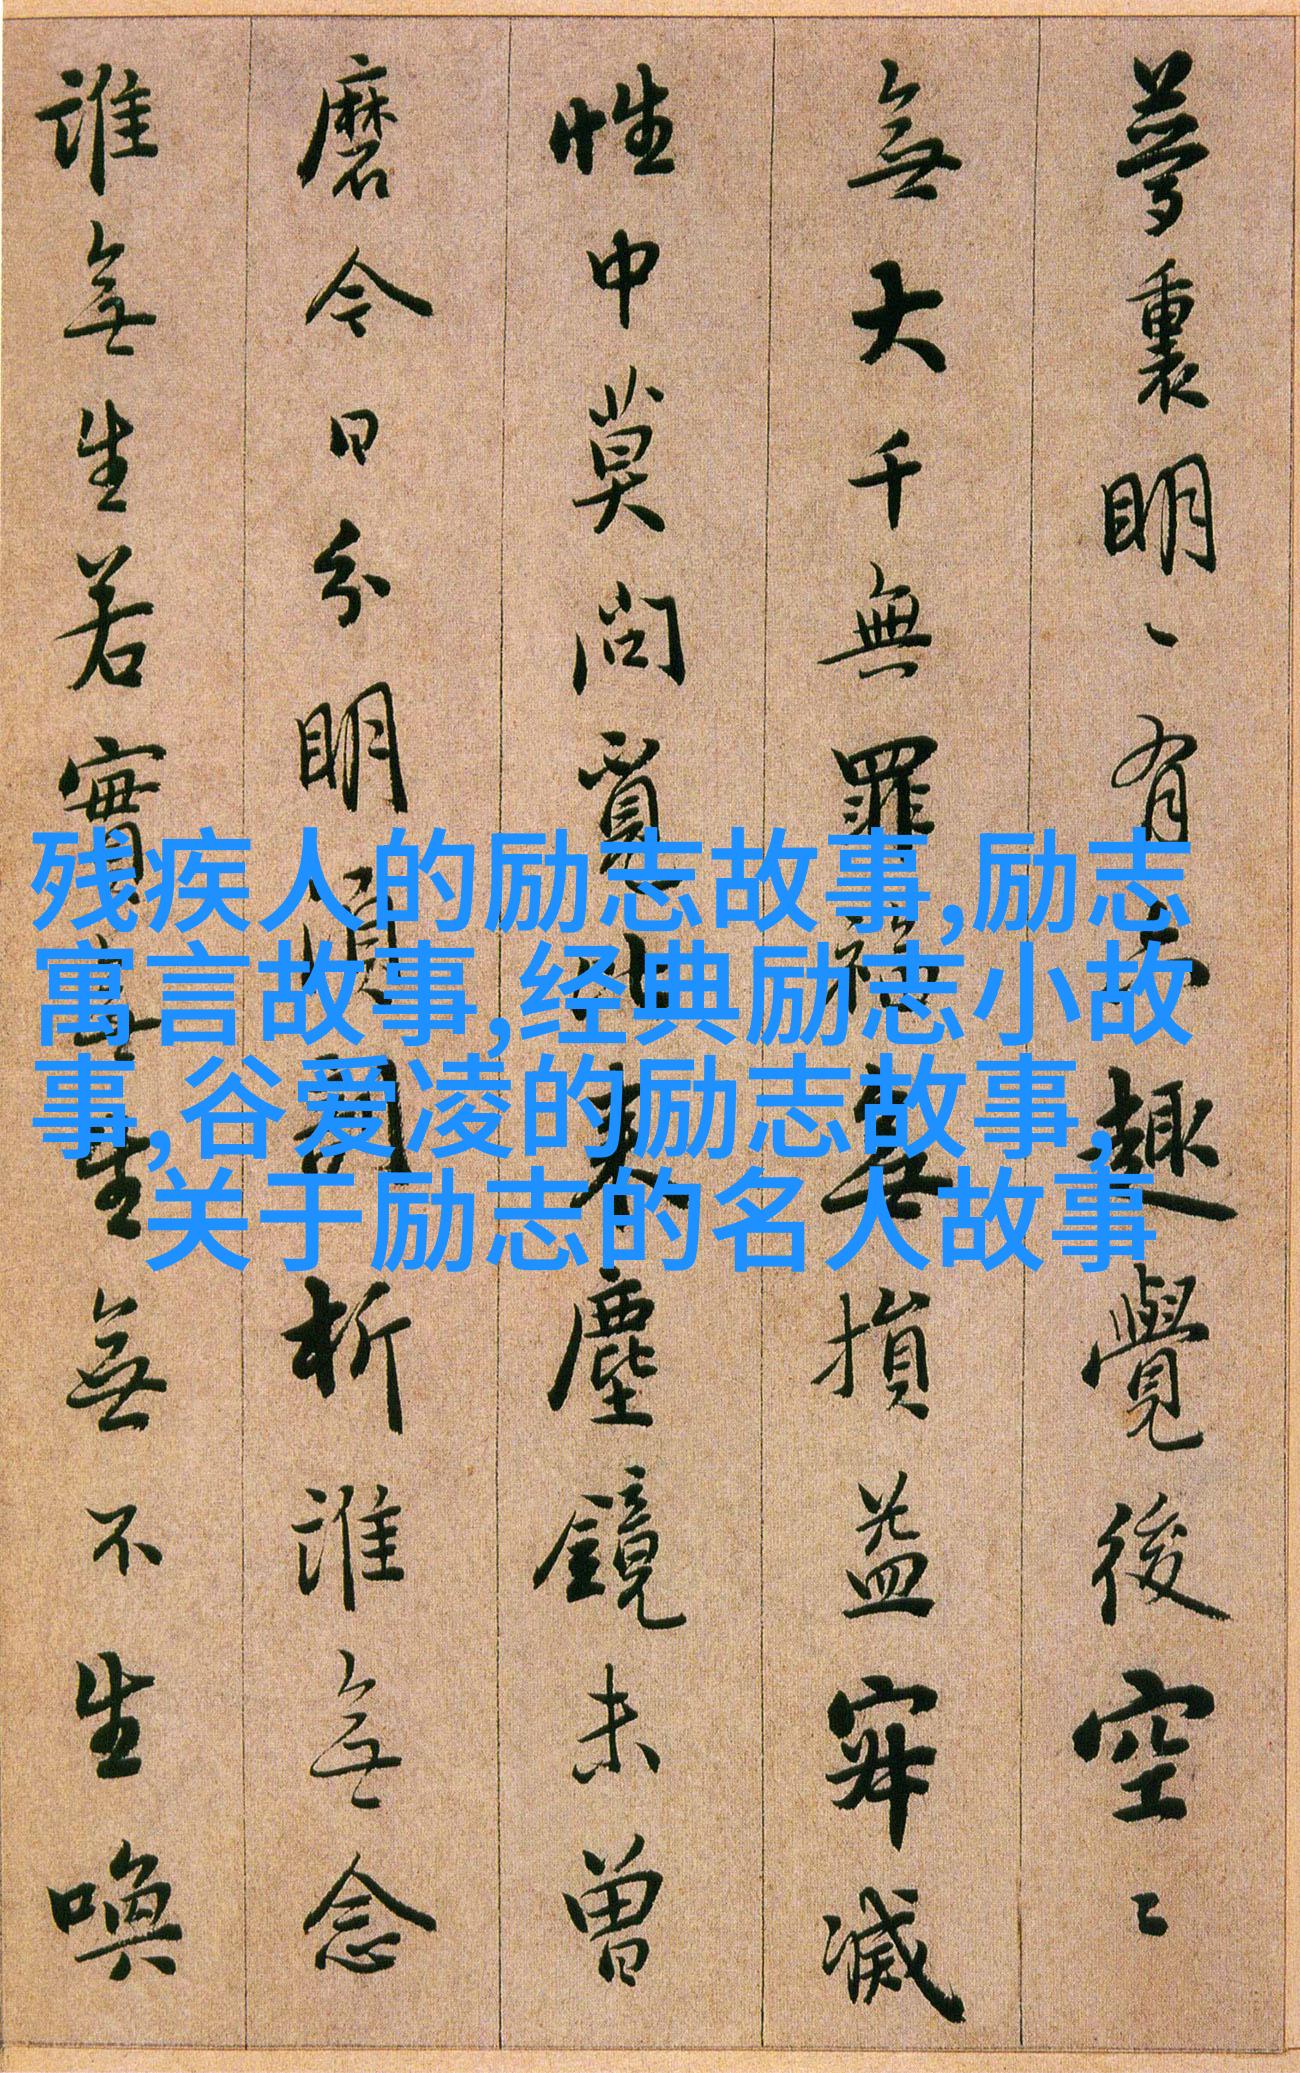 夢裏明々有六趣覺後空々
無大千無罪福無損益寂滅
性中莫問覓比来塵鏡未曾
磨今日分明須剖析誰無念
誰無生若實無生無不生喚
残疾人的励志故事,励志
寓言故事,经典励志小故
事,谷爱凌的励志故事,
关于励志的名人故事